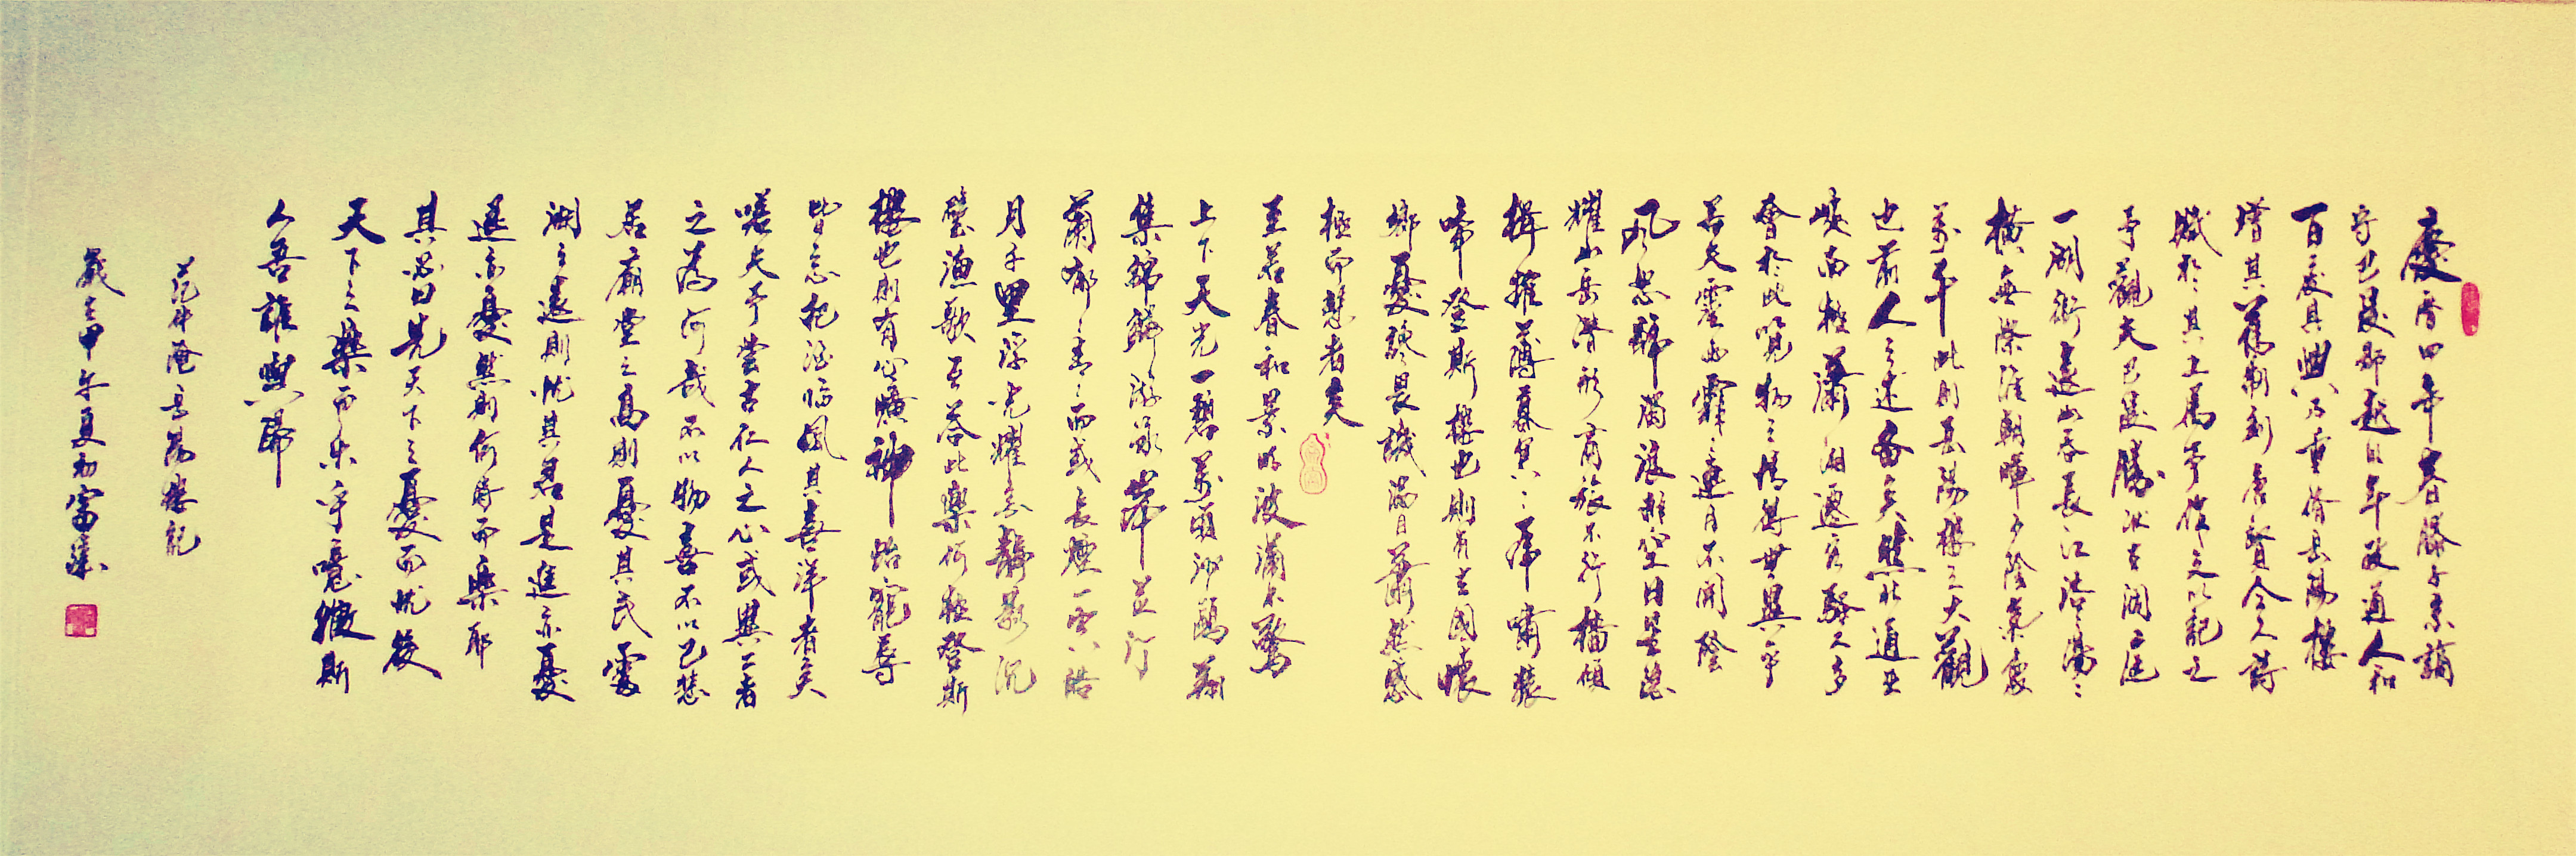 慶曆四年春滕子京謫
守巴陵郡越明年政通人和
百廢具興乃重脩岳陽樓
增其舊制刻唐賢今人詩
賦於其上屬予作文以記之
予觀夫巴陵勝狀在洞庭
一湖銜遠山吞長江浩浩湯湯
橫無際涯朝暉夕陰氣象
萬千此則岳陽樓之大觀
也前人之述備矣然則北通巫
峽南極瀟湘遷客騷人多
會於此覽物之情得無異乎
若夫霪雨霏霏連月不開陰
風怒號濁浪排空日星隱
耀山岳潛形商旅不行檣傾
楫摧薄暮冥冥虎嘯猿
啼登斯樓也則有去國懷
鄉憂讒畏譏滿目蕭然感
極而悲者矣
至若春和景明波瀾不驚
上下天光一碧萬頃沙鷗翔
集錦鱗游泳岸芷汀
蘭郁郁青青而或長煙一空皓
月千里浮光耀金靜影沉
璧漁歌互答此樂何極登斯
樓也則有心曠神怡寵辱
皆忘把酒臨風其喜洋洋者矣
嗟夫予嘗古仁人之心或異二者
之為何哉不以物喜不以己悲
居廟堂之高則憂其民處
湖之遠則憂其君是進亦憂
退亦憂然則何時而樂耶
其必曰先天下之憂而憂後
天下之樂而樂乎噫微斯
人吾誰與歸
范仲淹岳陽樓記